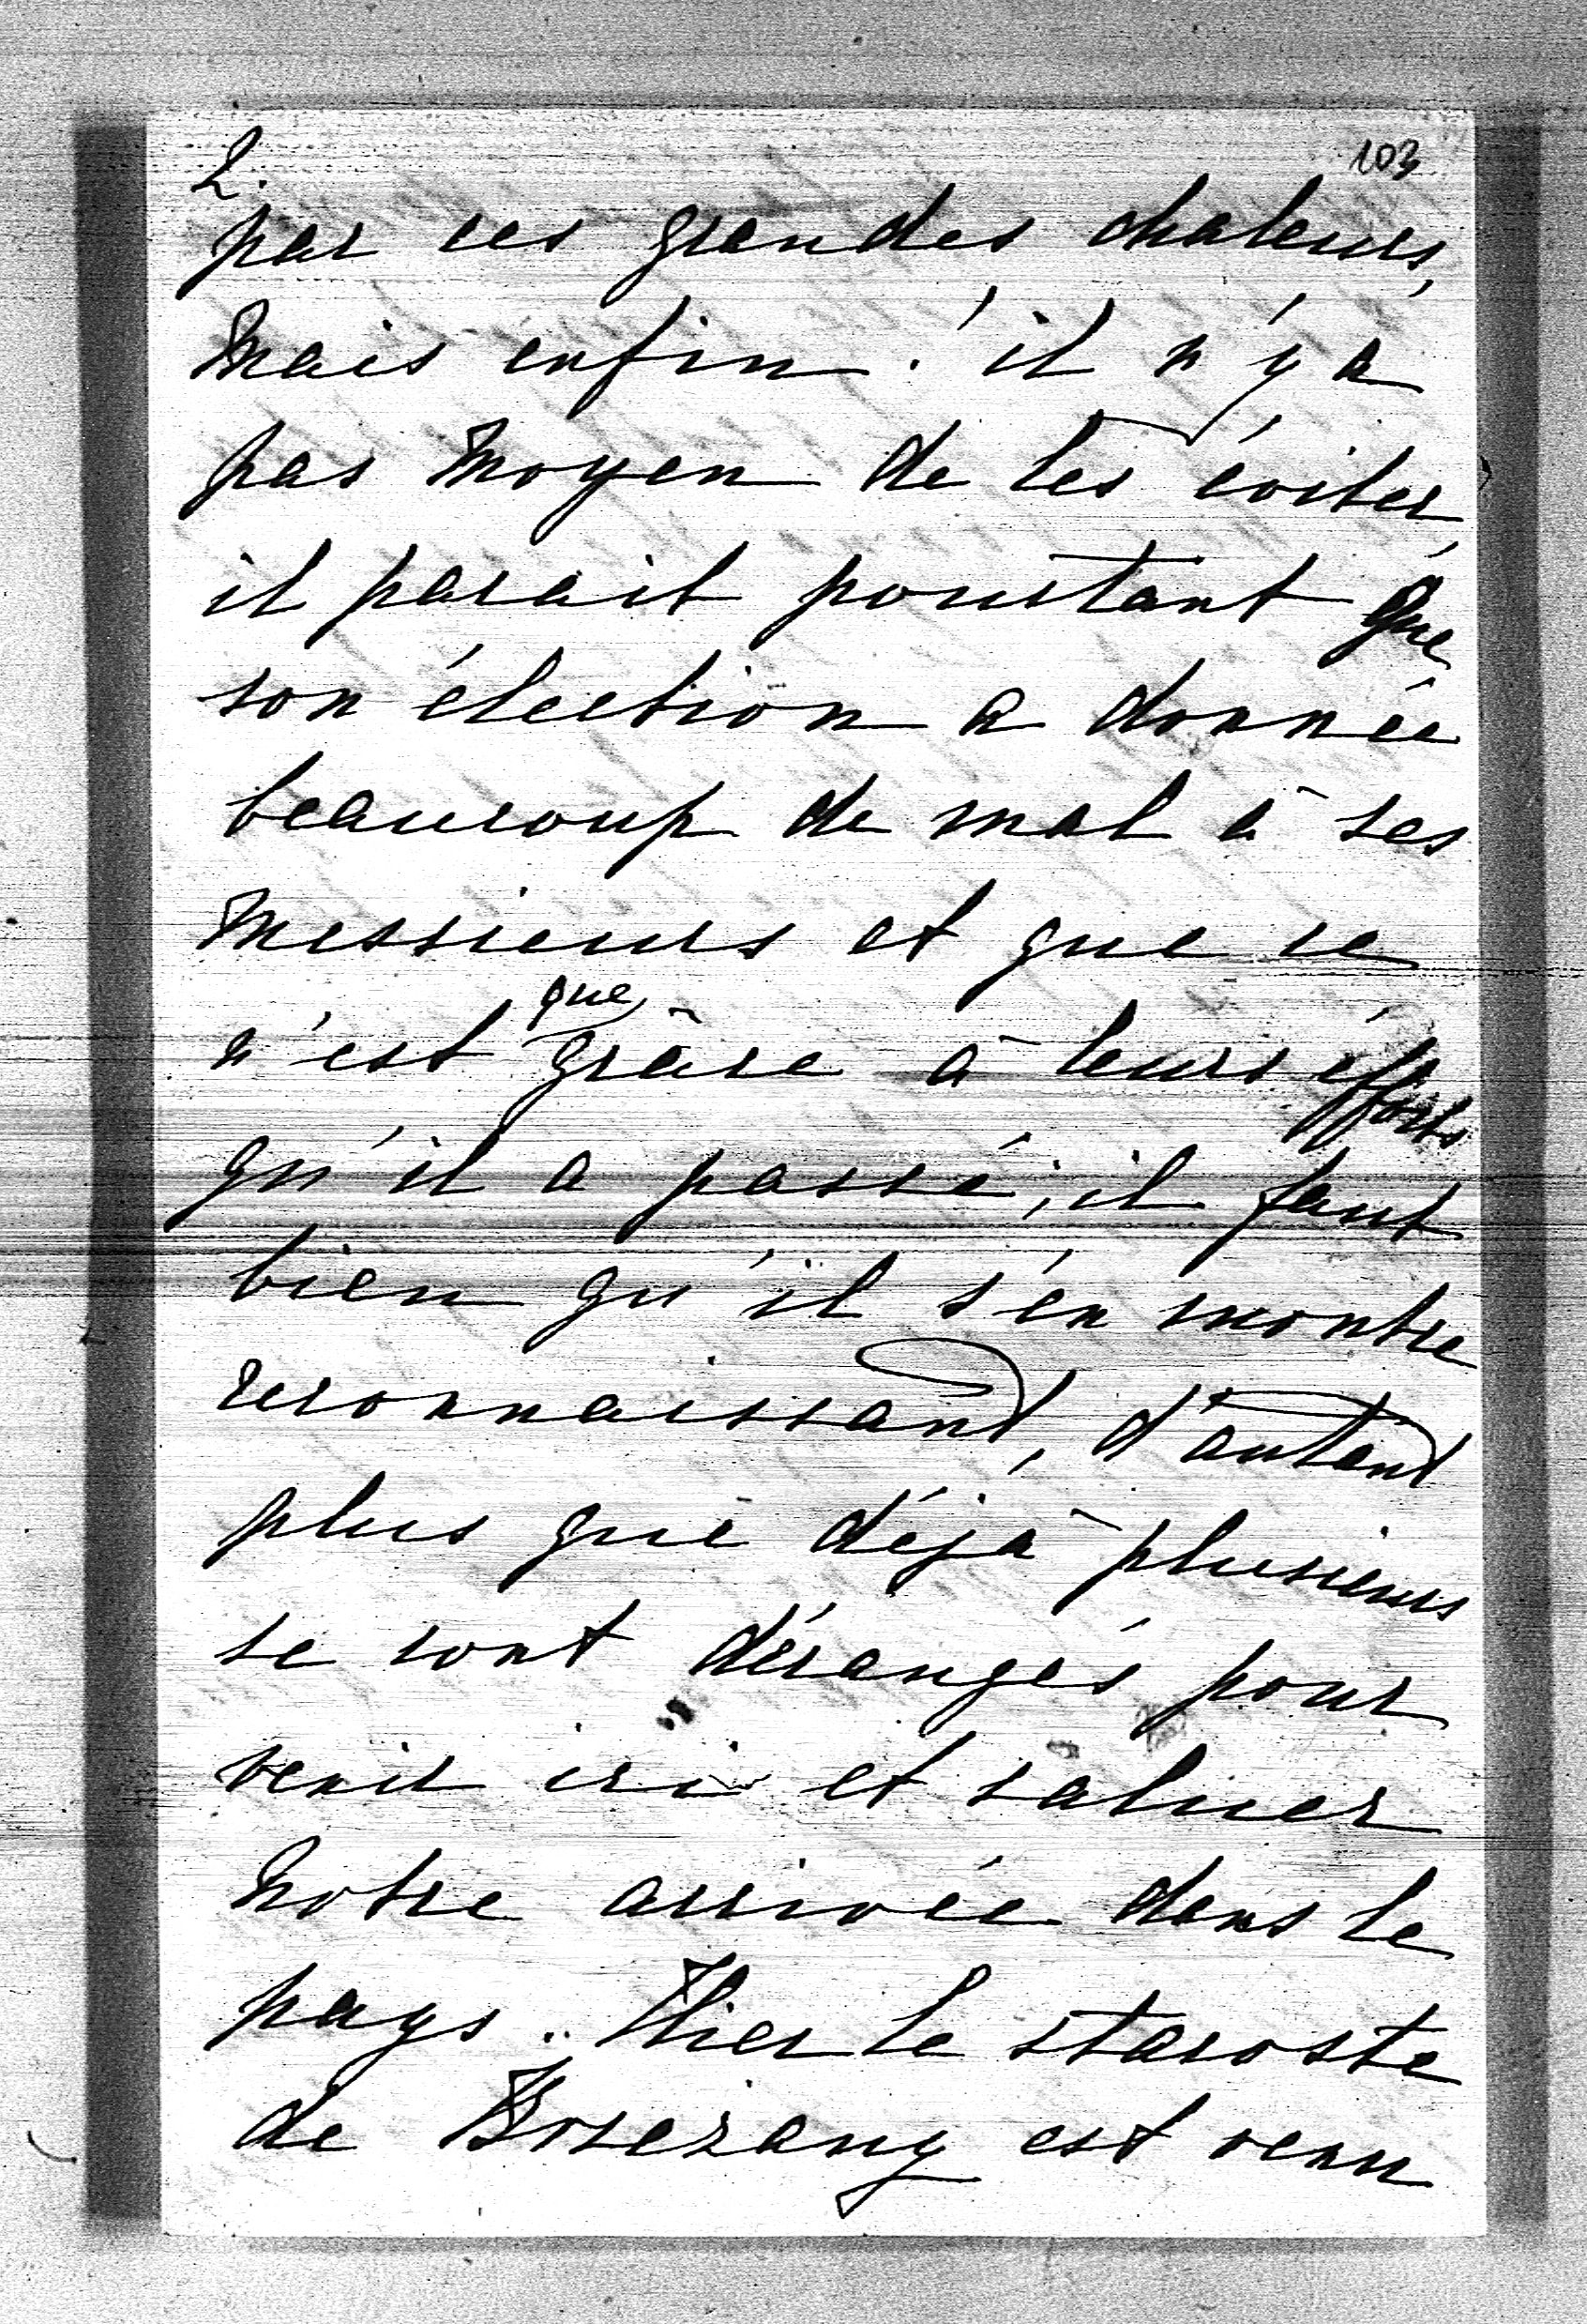 2.
103
par ces grandes chaleurs,
mais enfin. il n'y a
pas moyen de les éviter,
il parait pourtant que
son élection a donnée
beaucoup de mal à ses
messieurs et que ce
n'est que grâce à leurs éfforts
qu'il a passé; il faut
bien qu'il s'en montre
reconnaissant, d'autant
plus que déjà plusieurs
se sont dérangés pour
venir ici et saluer
notre arrivée dans le
pays. Hier le staroste
de Brzezany est venu